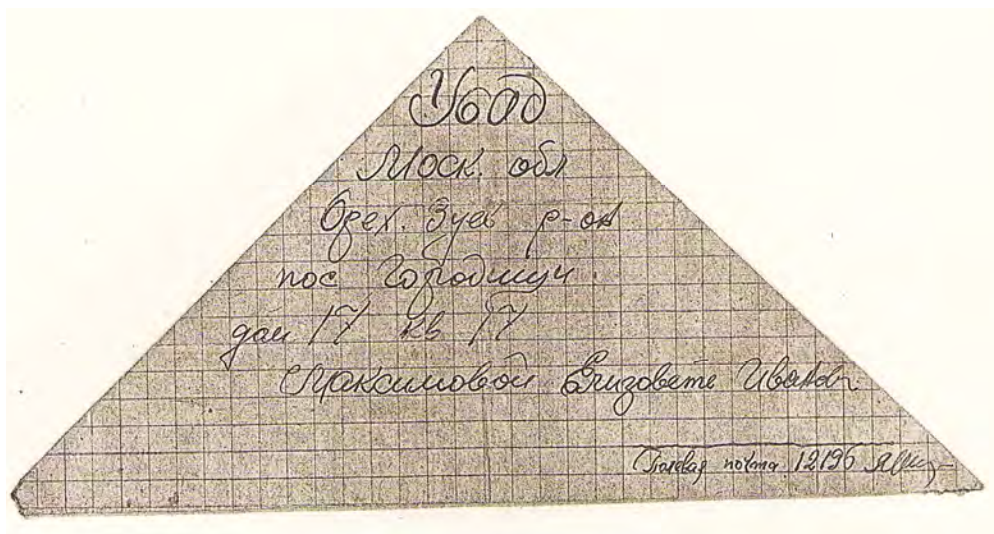 Моск. обл
Орех. Зуев р-он
пос Городищи.
дом 17 кв 17
Максимовой Елизавете Ивановн
Полевая почта 12196